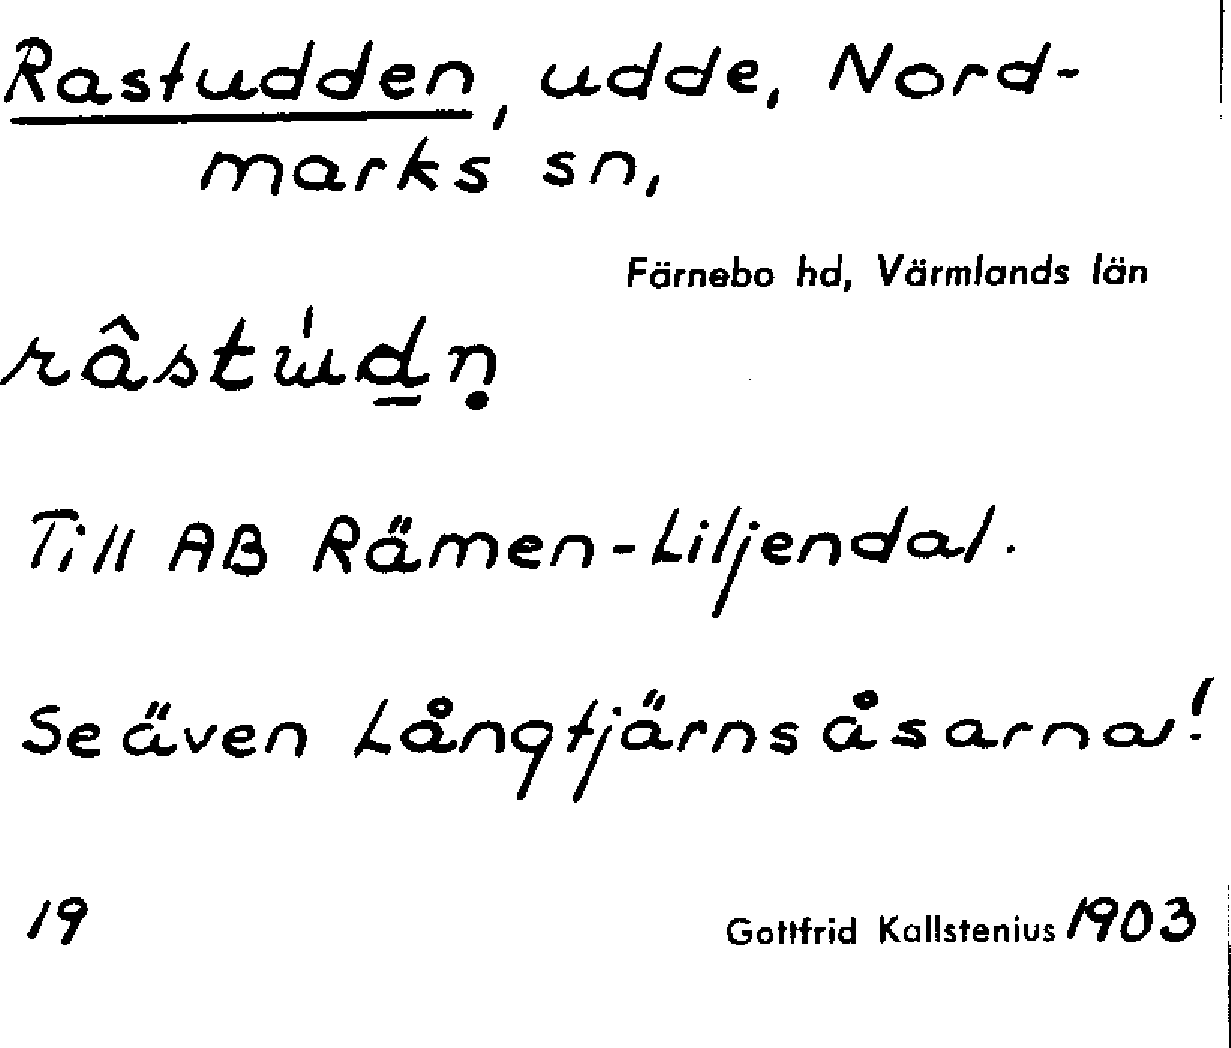 Rastudden, udde, Nord-
marks sn,
Färnebo hd, Värmlands län
râstu̍d̲ṇ
Till AB Rämen-Liljendal.
Se även Långtjärnsåsarna!
19 Gottfrid Kallstenius 1903